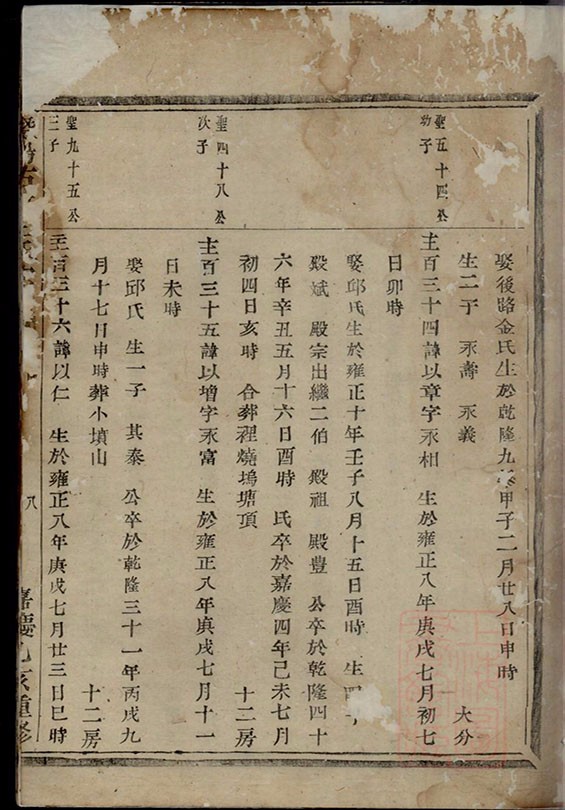 娶後路金氏生於乾隆九年甲子二月廿八日申時
生二子 永壽 永義 大分
聖五十四公
幼子
主百三十四諱以章字永相 生於雍正八年庚戌七月初七
日卯時
娶邱氏生於雍正十年壬子八月十五日酉時 生四子
殿斌 殿宗出繼二伯 殿祖 殿豐 公卒於乾隆四十
六年辛丑五月十六日酉時 氏卒於嘉慶四年己未七月
初四日亥時 合葬裡燒塢塘頂 十二房
聖四十八公
次子
主百三十五諱以增字永富 生於雍正八年庚戌七月十一
日未時
娶邱氏 生一子 其泰 公卒於乾隆三十一年丙戌九
月十七日申時葬小墳山 十二房
聖九十五公
三子
主百三十六諱以仁 生於雍正八年庚戌七月廿三日巳時
八
嘉慶乙亥重修